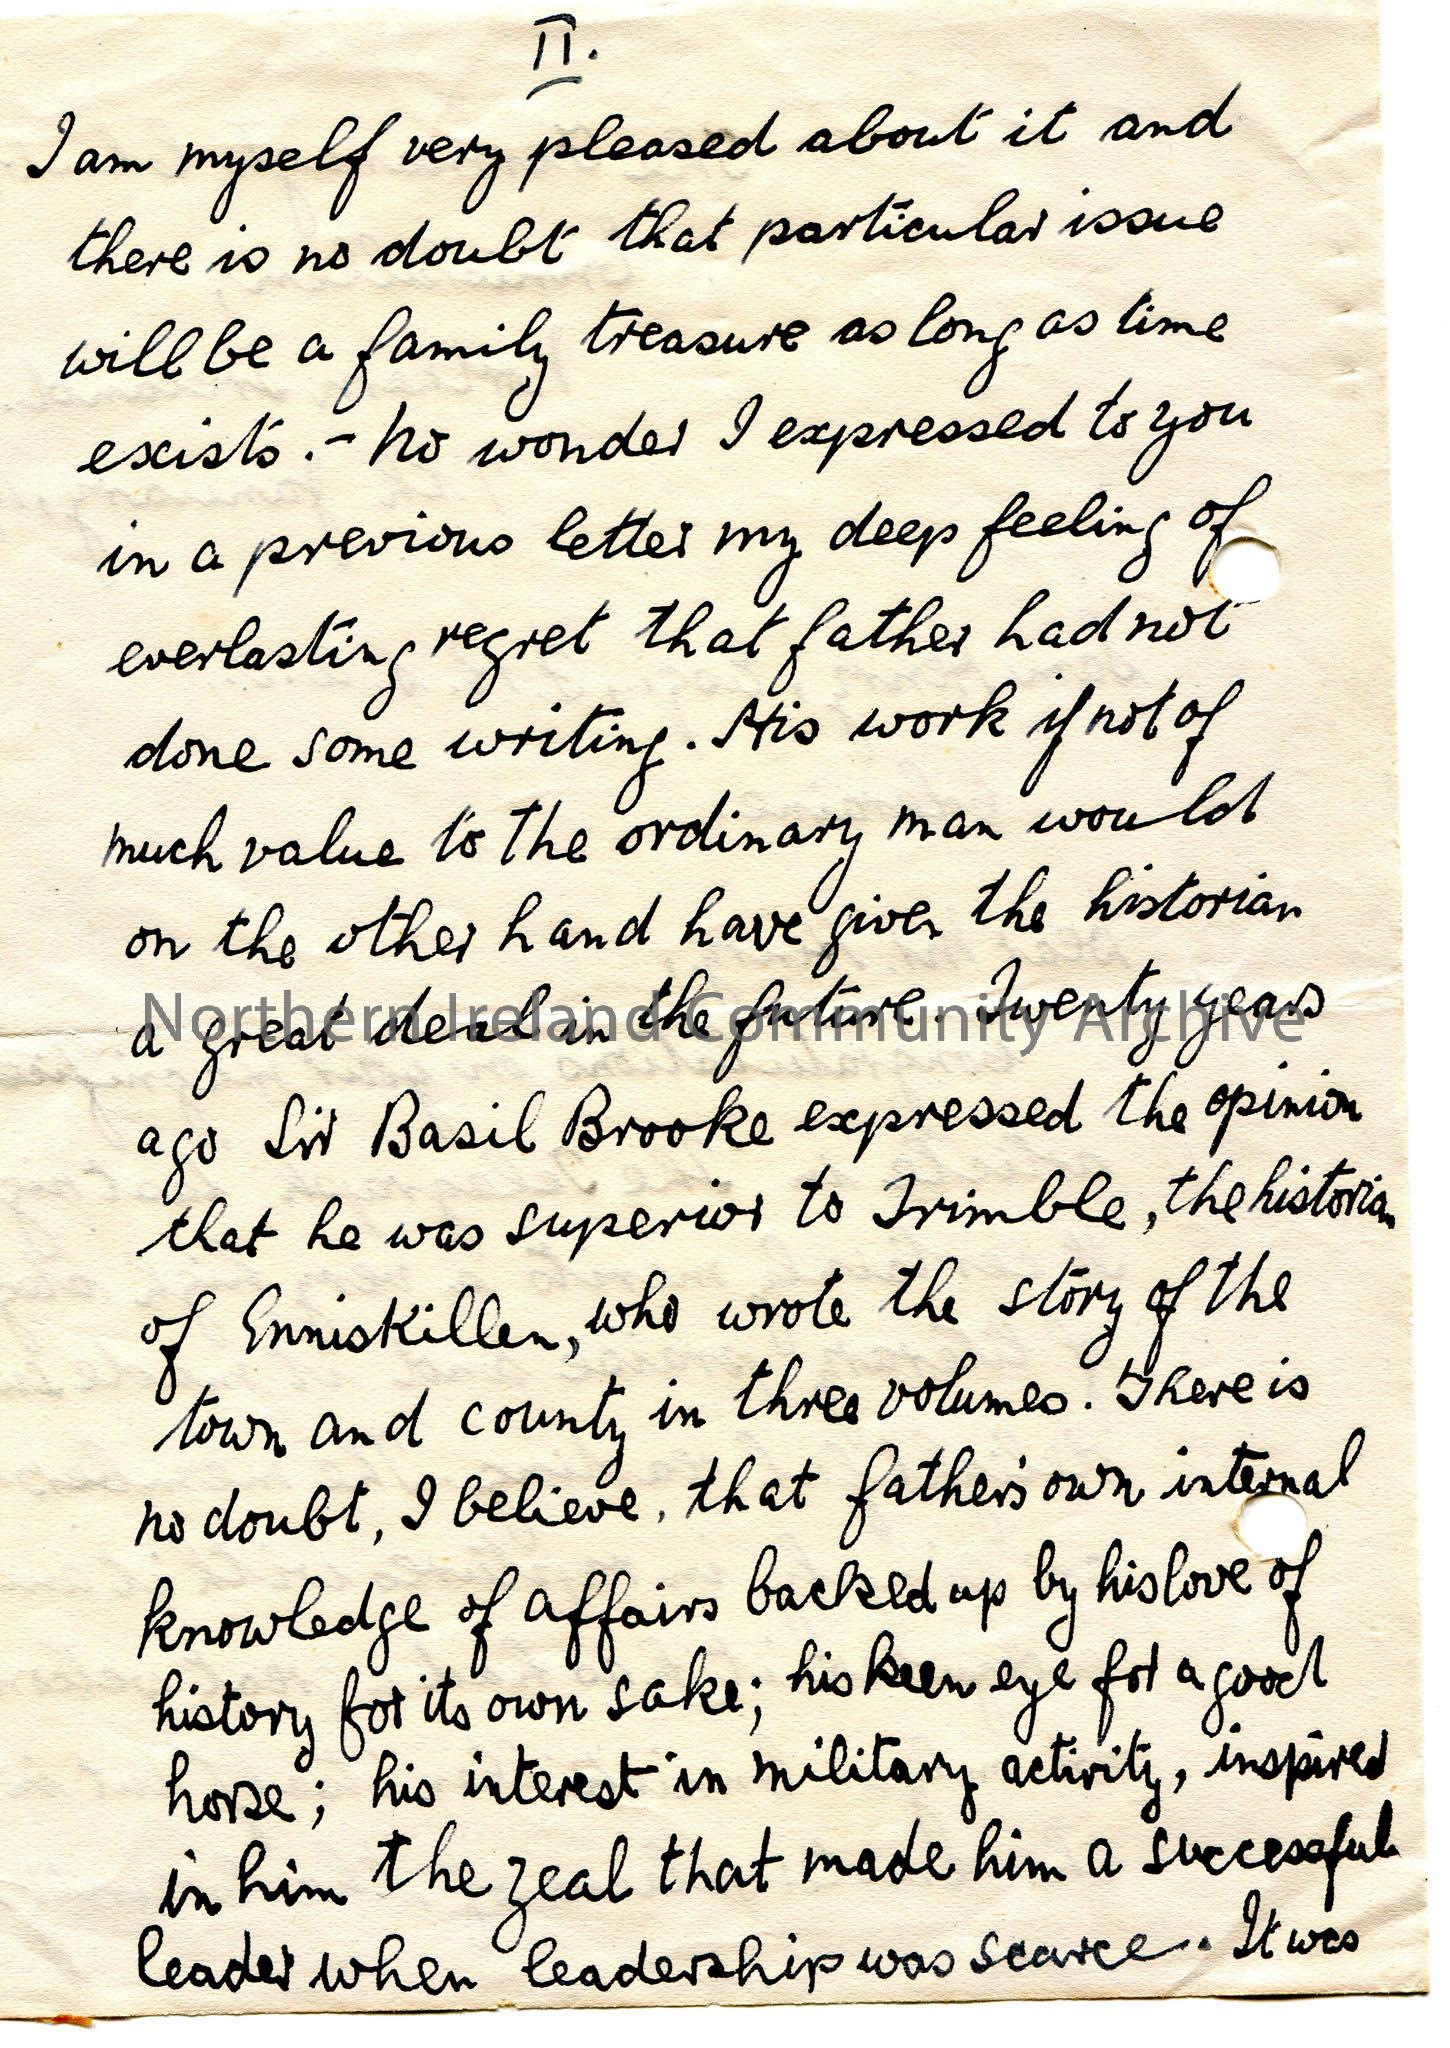 II.
I am myself very pleased about it and
there is no doubt that particular issue
will be a family treasure as long as time
exists. - No wonder I expressed to you
in a previous letter my deep feeling of
everlasting regret that father had not
done some writing. His work if not of
much value to the ordinary man would
on the other hand have given the historian
a great deal in the future. Twenty years
Northern Ireland Community Archive
ago Sir Basil Brooke expressed the opinion
that he was superior to Trimble, the historian
of Enniskillen, who wrote the story of the
town and county in three volumes. There is
no doubt, I believe, that father's own internal
knowledge of affairs backed up by his love of
history for its own sake; his keen eye for a good
horse; his interest in military activity, inspired
in him the zeal that made him a successful
leader when leadership was scarce. It was